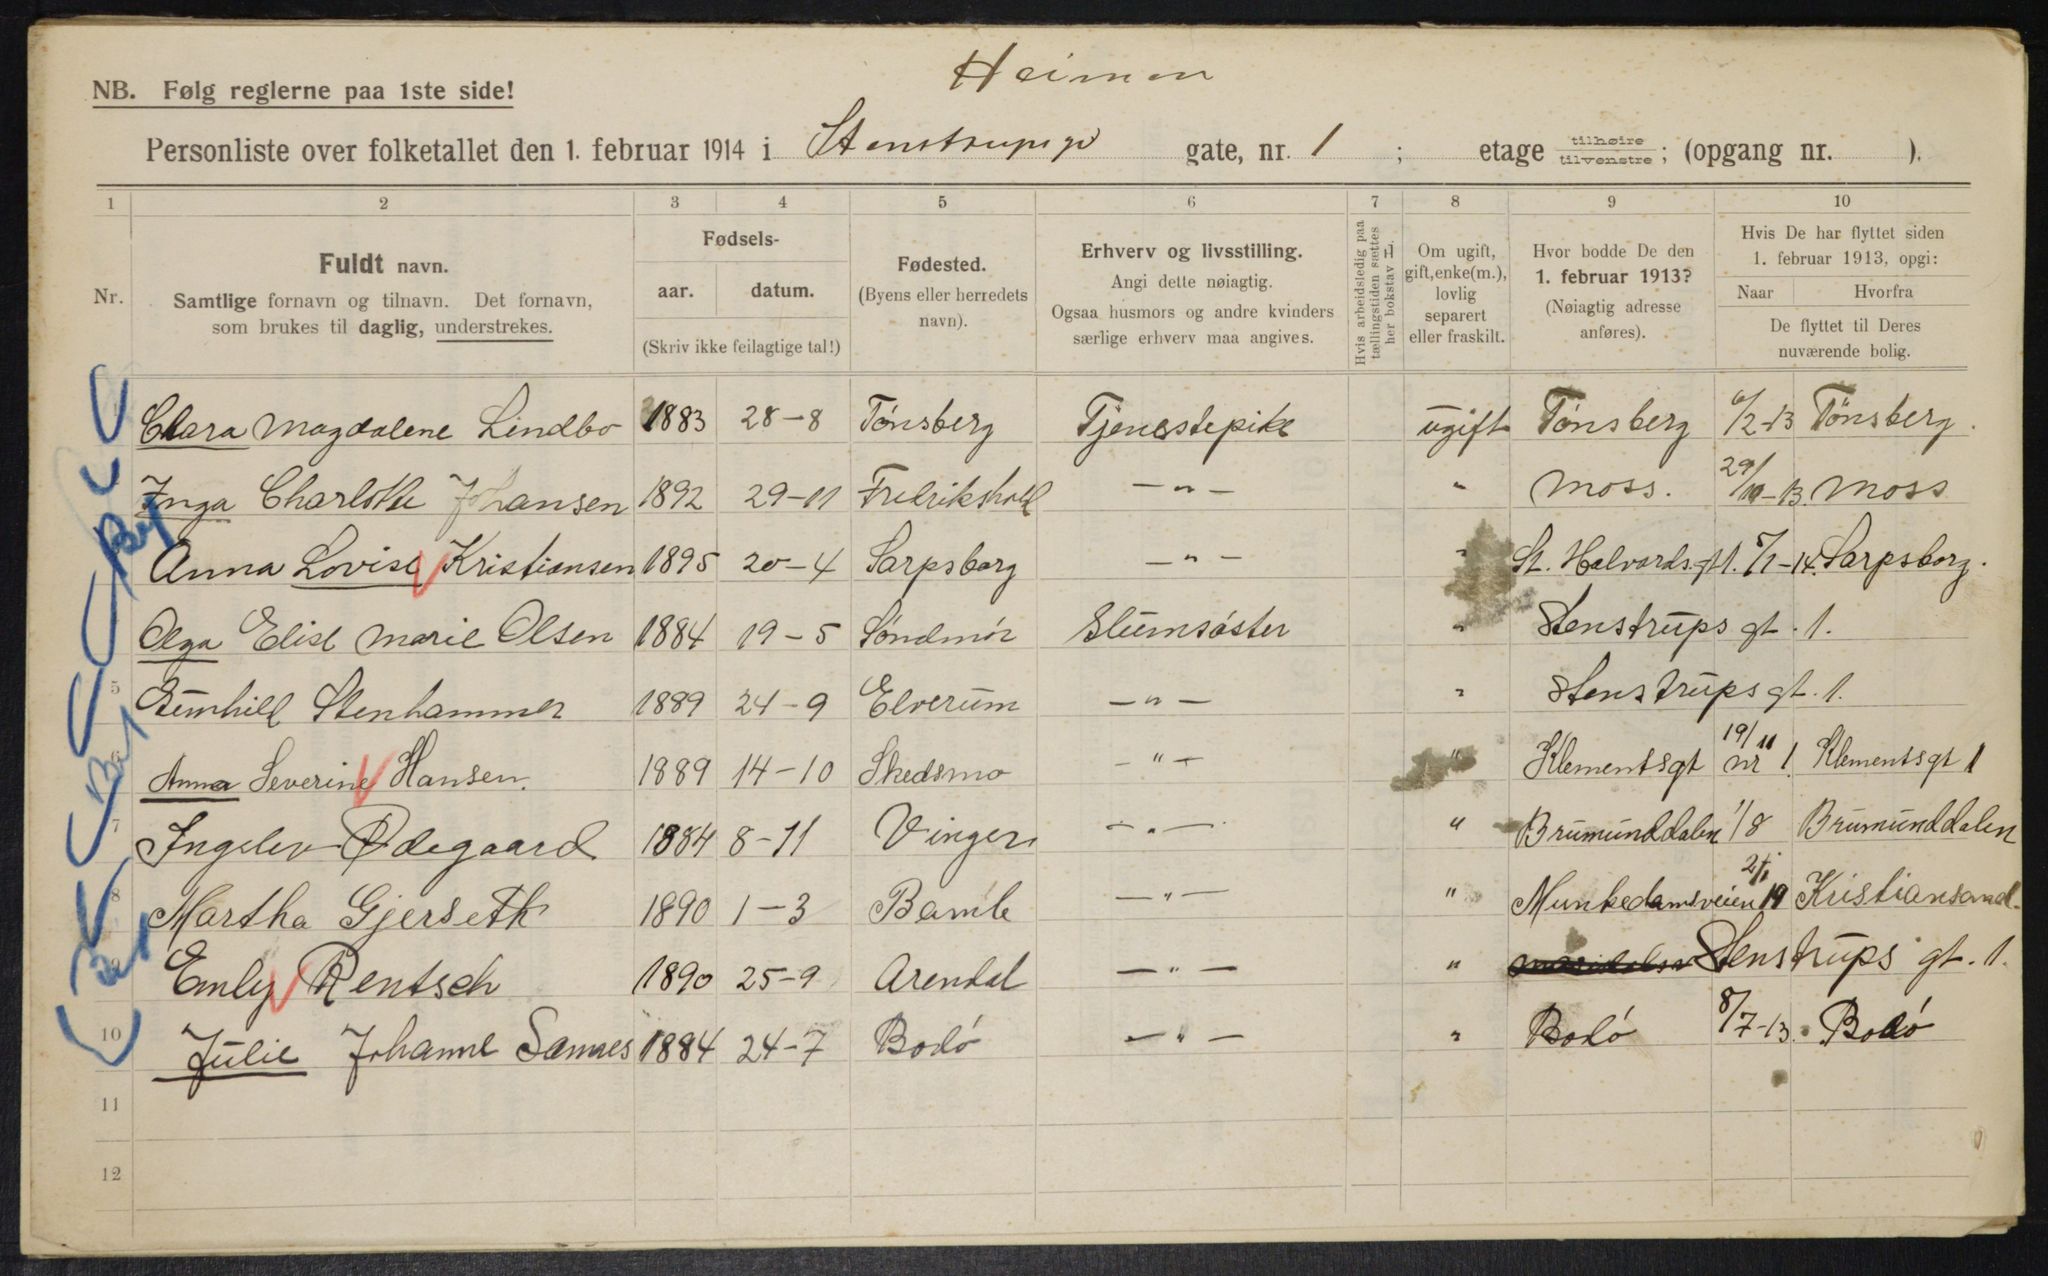 Heimen
NB. Følg reglerne paa 1ste side!
Personliste over folketallet den 1. februar 1914 i Stenstrupsgt gate, nr. 1 ; etage tilhøire tilvenstre ; (opgang nr. ).
1 2 3 4 5 6 7 8 9 10
Nr.
Fuldt navn.
Samtlige fornavn og tilnavn. Det fornavn,
som brukes til daglig, understrekes.
Fødsels-
aar. datum.
(Skriv ikke feilagtige tal!)
Fødested.
(Byens eller herredets
navn).
Erhverv og livsstilling.
Angi dette nøiagtig.
Ogsaa husmors og andre kvinders
særlige erhverv maa angives.
Hvis arbeidsledig paa
tællingstiden sættes
her bokstav L.
Om ugift,
gift, enke(m.),
lovlig
separert
eller fraskilt.
Hvor bodde De den
1. februar 1913?
(Nøiagtig adresse
anføres).
Hvis De har flyttet siden
1. februar 1913, opgi:
Naar Hvorfra
De flyttet til Deres
nuværende bolig.
Clara Magdalene Lindbo 1883 28-8 Tønsberg Tjenestepike ugift Tønsberg 6/2-13 Tønsberg.
Inga Charlotte Johansen 1892 29-11 Fredrikshald -"- " Moss. 29/10-13. Moss
Anna Lovise Kristiansen 1895 20-4 Sarpsborg -"- " St. Halvards gt 1. 5/1-14. Sarpsborg.
Olga Elise Marie Olsen 1884 19-5 Søndmør Slumsøster " Stenstrups gt. 1.
5 Gunhild Stenhammer 1889 24-9 Elverum -"- " Stenstrups gt. 1.
6 Anna Severine Hansen. 1889 14-10 Skedsmo -"- " Klementsgt nr 1. 19/11 Klementsgt 1
7 Ingslev Ødegaard 1884 8-11 Vinger -"- " Brumunddalen 1/8 Brumunddalen
8 Martha Gjerseth 1890 1-3 Bamle -"- " Munkedamsveien 19 2/1 Kristiansand.
9 Emly Rentsch 1890 25-9 Arendal -"- " Stenstrups gt. 1.
10 Julie Johanne Sannes 1884 24-7 Bodø -"- " Bodø 8/7-13. Bodø
11
12